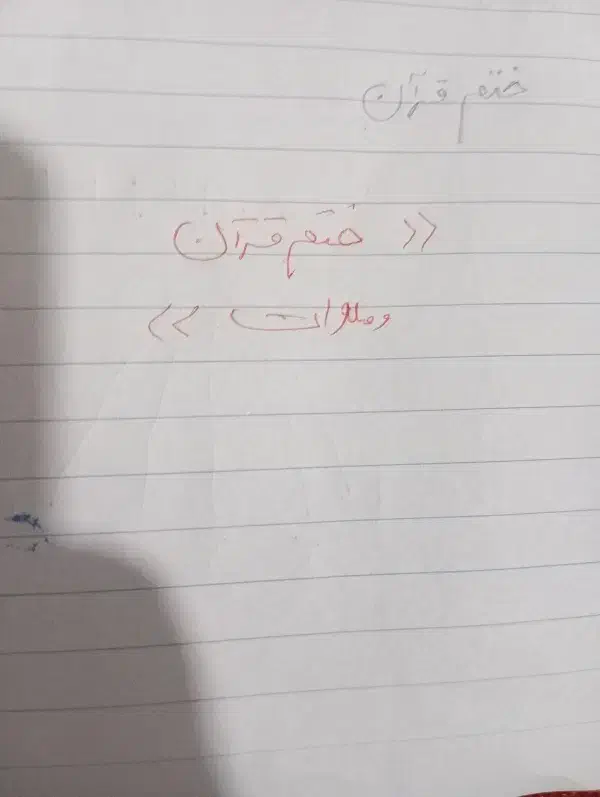 ختم قرآن
« ختم قرآن
وصلوات »